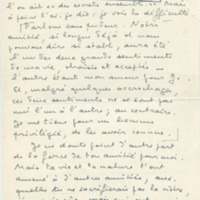 l'on ait eu des secrets ensemble. Mais
à peine l'ai-je dit, je vois la difficulté
Parlons sans pudeur. Notre
amitié, si longue déjà et nous
pouvons dire si stable, aura été
l'un des deux grands sentiments
de ma vie, choisis et acceptés —
l'autre étant mon amour pour
malgré quelque accrochage,
ces deux sentiments ne se sont pas
nui l'un à l'autre ; au contraire.
Je me tiens pour un homme
privilégié, de les avoir connus.
Je ne doute point d'autre part
de la force de ton amitié pour moi.
Mais ta vie et ta nature t'ont
amené à d'autres amitiés, aux-
quelles tu me sacrifierais pas la nôtre,